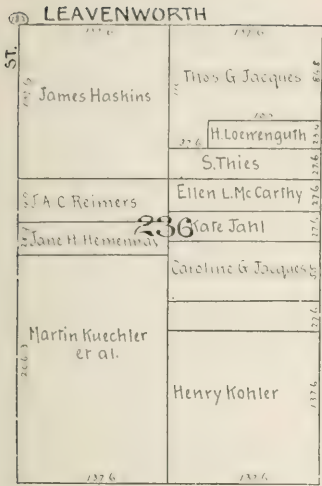 LEAVENWORTH
ST.
137.6
137.6
James Haskins
Thos G Jacques
H. Loewenguth
27.6
S. Thies
J A C Reimers
Ellen L. McCarthy
27.6
236
Jane H. Hemenway
Kate Jahl
27.6
Caroline G Jacques
Martin Kuechler
et al.
27.6
Henry Kohler
137.6
137.6
137.6